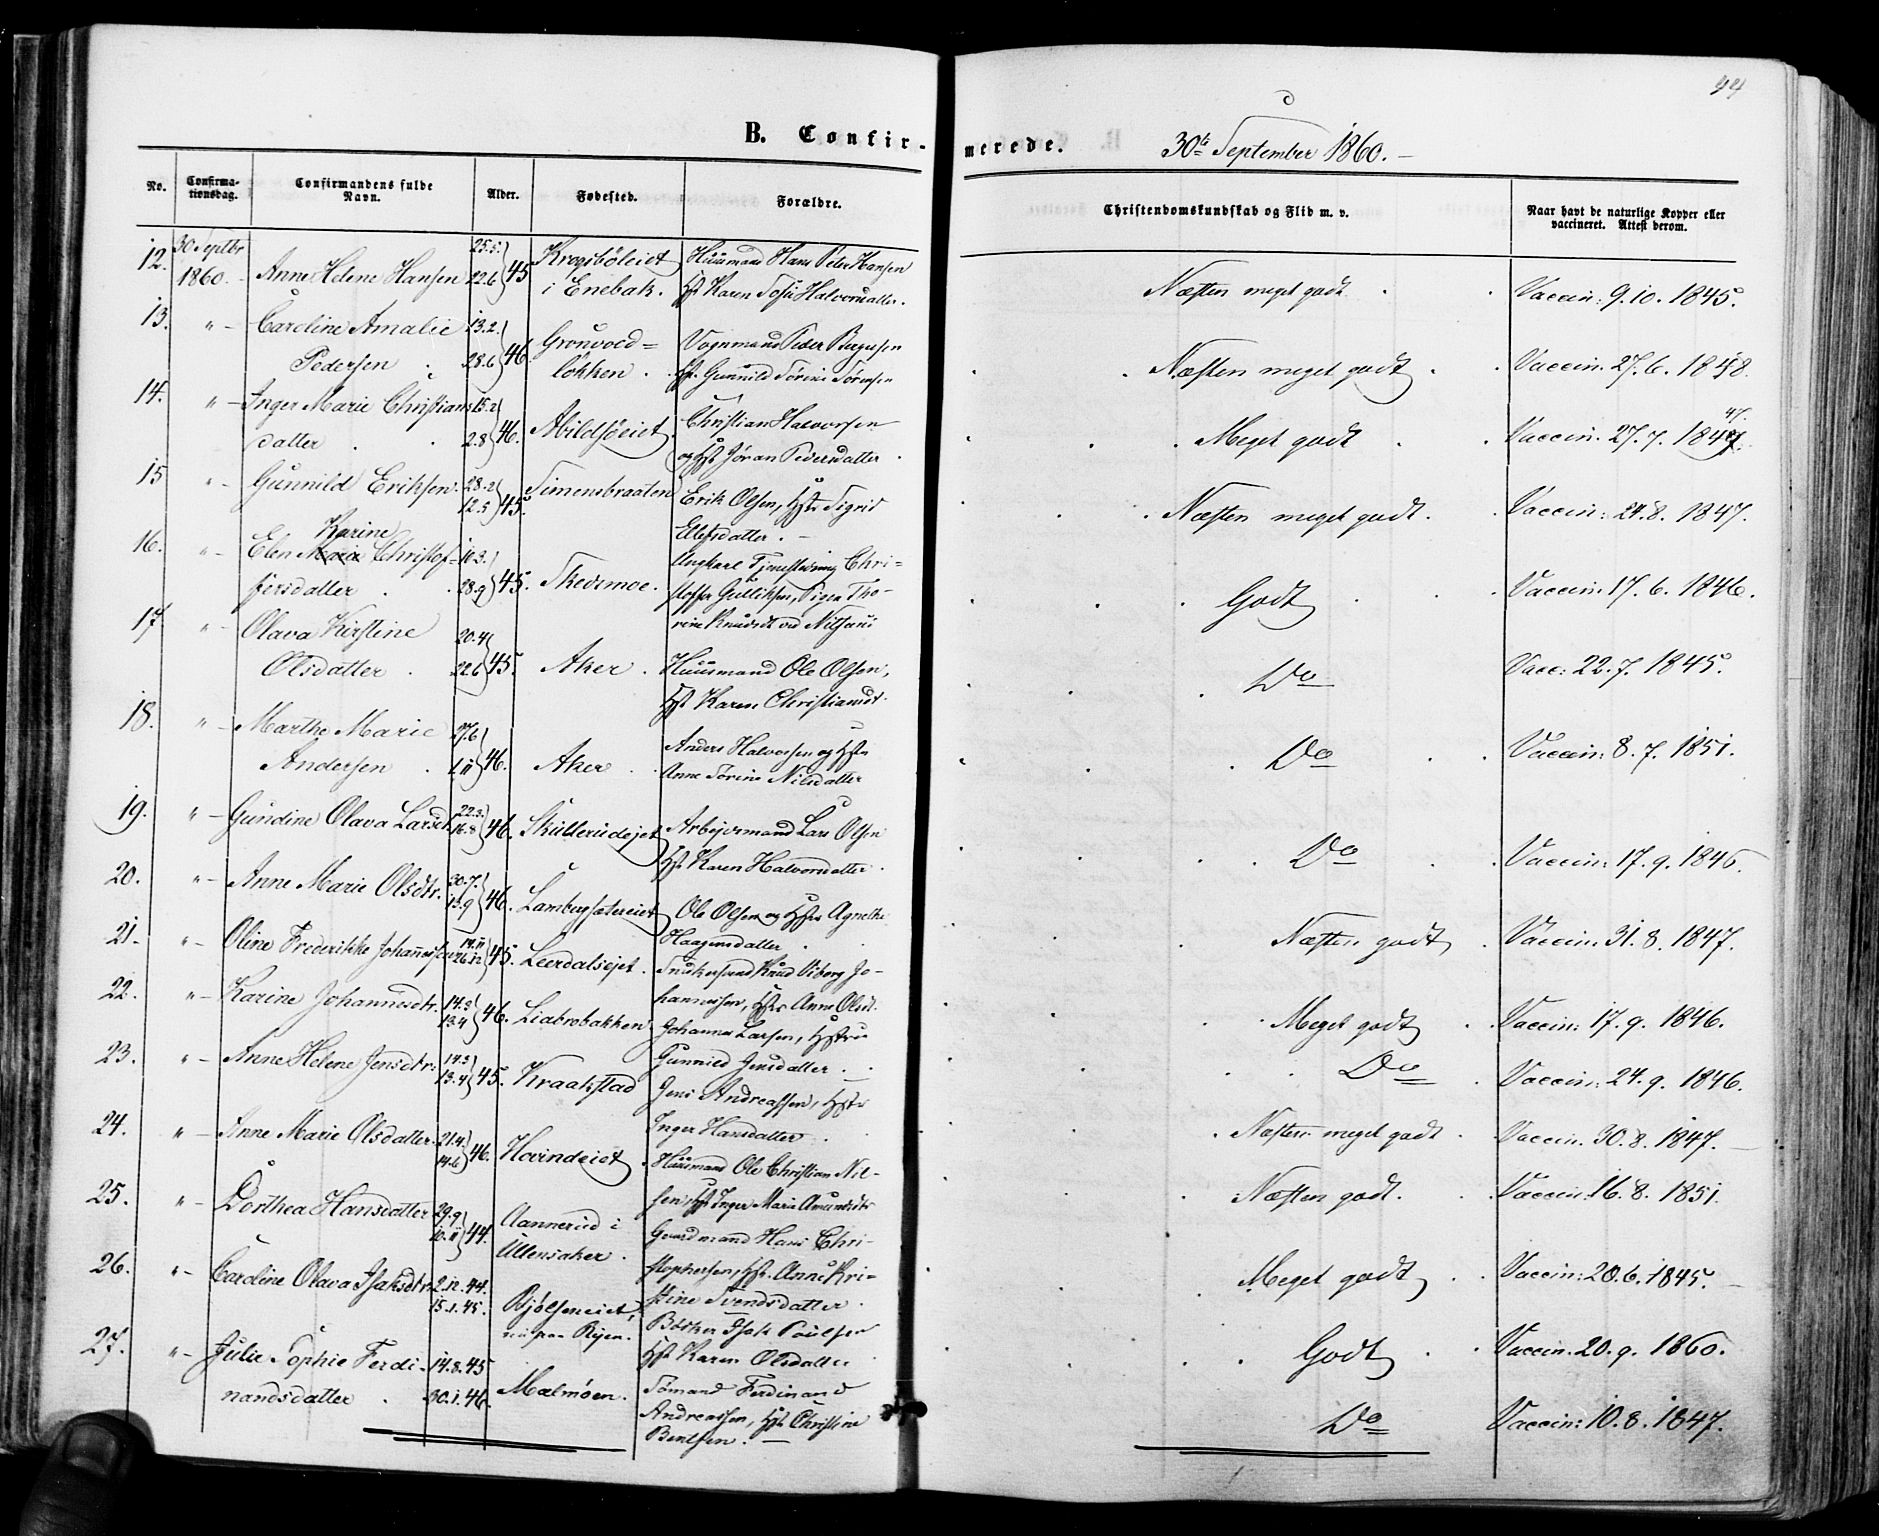 44
B. Confirmerede. 30te September 1860.
No. Confirmationsdag. Confirmandens fulde Navn. Alder. Fødested. Forældre. Christendomskundskab og Flid m. v. Naar havt de naturlige Kopper eller vaccineret. Attest derom.
12. 30 Septbr 1860. Anne Helene Hansen 25.5. 22.6 45 Krogsbøleiet i Enebak. Huusmand Hans Peter Hansen Hst. Karen Halvorsdatter. Næsten meget godt Vaccin: 9.10.1845.
13. " Caroline Amalie Pedersen 13.2. 28.6 46. Grønvold=løkken. Vognmand Peder Hst. Gunnild Sørine Sørensen Næsten meget godt Vaccin. 27.6. 1858.
14. " Inger Marie Christiansdatter 15.2 2.8 46. Abildsøeiet Christian Halvorsen og Hst. Jøran Pedersdatter. Meget godt Vaccin. 27.7. 1847.
15 " Gunnild Eriksen. 28.2 12.5 45. Simensbraaten Erik Olsen, Hstr Sigrid Ellefsdatter. Næsten meget godt. Vaccin: 24.8. 1847.
16. " Elen Karine Christof=fersdatter 10.3. 28.9 45. Skedsmoe. Ungkarl Christoffer Gulliksen, Pige Thorine Knudsdt Godt Vaccin: 17.6. 1846.
17. " Olava Kirstine Olsdatter 20.4 22.6 45. Aker. Huusmand Ole Olsen, Hst Karen Christiansdt. Do Vacc: 22.7. 1845.
18. " Marthe Marie Andersen 27.6 1.11 46. Aker Anders Halvorsen og Hstr Anne Sørine Nilsdatter Do Vaccin: 8.7. 1851.
19. " Gundine Olava Larsdt. 22.3. 16.8 46. Skullerudejet Arbejdsmand Lars Olsen Hst. Karen Halvorsdatter. Do Vaccin: 17.9. 1846.
20. " Anne Marie Olsdtr. 30.7. 13.9 46. Lambergsætereiet Ole Olsen og Hstr Agnethe Haagensdatter Næsten godt Vaccin: 31.8. 1847.
21. " Oline Frederikke Johannessen 14.11 26.12 45. Leerdalsejet. Snekkersvend Knud Viberg Johannessen, Hstr Anne Olsdt. Meget godt Vaccin: 17.9. 1846.
22. " Karine Johannesdtr. 14.3 13.4 46. Liabrobakken Johannes Larsen, Hstru Gunnild Jensdatter. Do Vaccin: 24.9. 1846.
23. " Anne Helene Jensdtr. 14.3 13.4 45. Kraakstad Jens Andreassen, Hstr Inger Hansdatter. Næsten meget godt Vaccin. 30.8. 1847.
24. " Anne Marie Olsdatter. 21.4. 14.6 46. Hovindeiet Huusmand Ole Christian Nilsen, Hst. Inger Maria Amundsdtr Næsten godt. Vaccin. 16.8. 1851.
25. " Dorthea Hansdatter 29.9 10.11 44. Aannerud i Ullensaker. Gaardmand Hans Christophersen, Hst. Anne Kristine Svendsdatter. Meget godt Vaccin: 20.6. 1845.
26. " Caroline Olava Isaksdtr. 2.12.44. 15.1.45. Bjølseneiet, nu paa Ryen. Bødker Isak Paulsen Hst. Karen Olsdatter Godt Vaccin. 20.9. 1860.
27. " Julie Sophie Ferdinandsdatter 14.8.45 30.1.46. Malmøen. Sømand Ferdinand Andreassen, Hst. Christine Bentsen. Do Vaccin: 10.8. 1847.